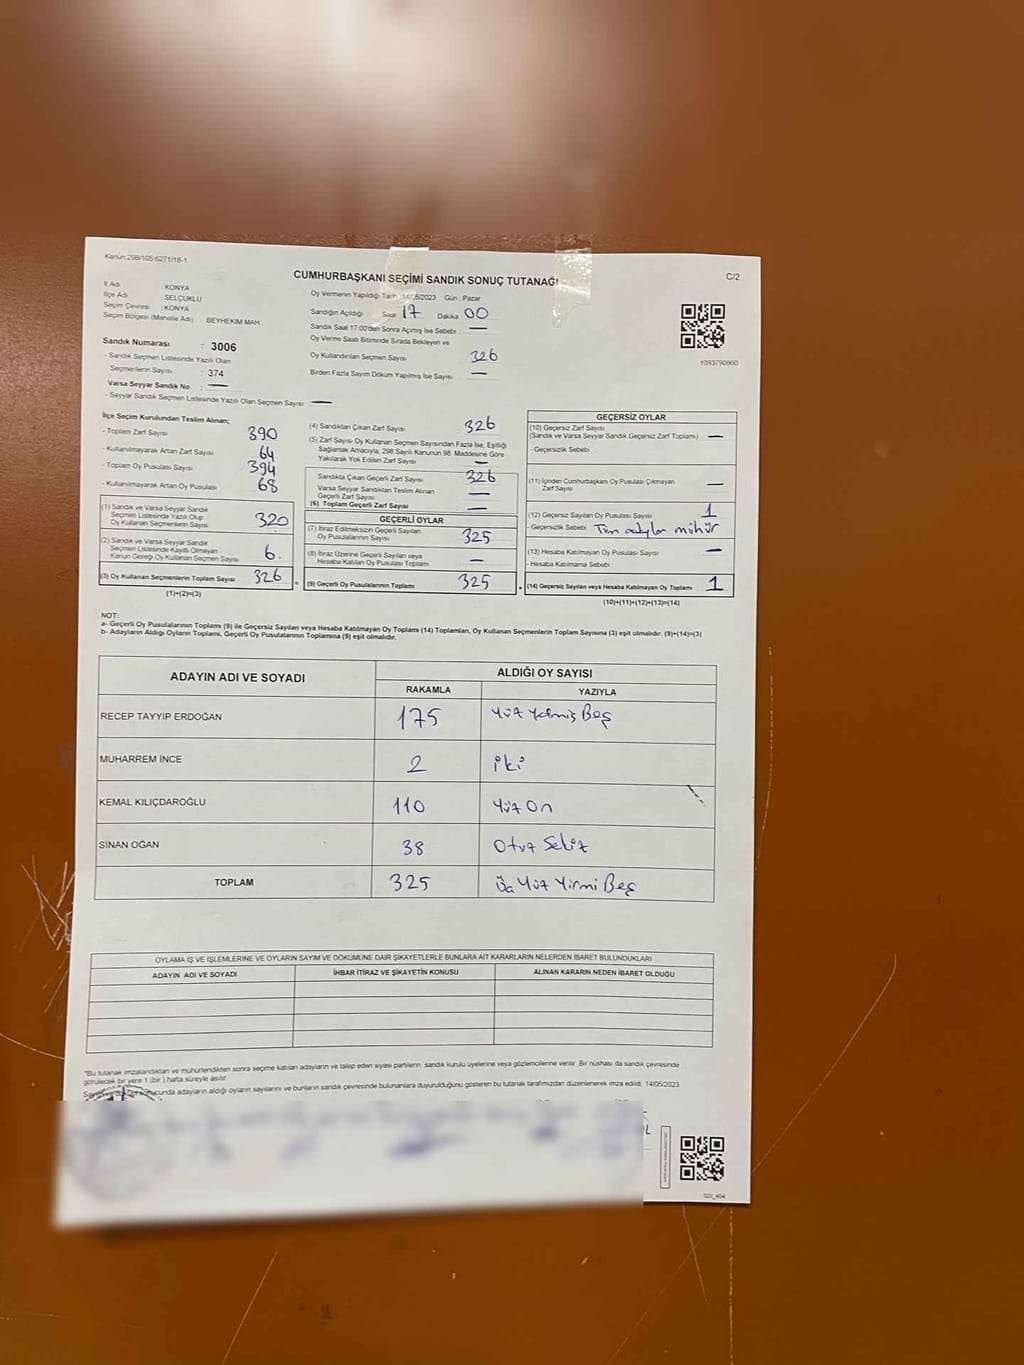 Kanun:298/105:6271/18-1
C/2
CUMHURBAŞKANI SEÇİMİ SANDIK SONUÇ TUTANAĞI
İl Adı : KONYA
İlçe Adı : SELÇUKLU
Seçim Çevresi : KONYA
Seçim Bölgesi (Mahalle Adı) BEYHEKİM MAH.
Oy Vermenin Yapıldığı Tarih 14/05/2023 Gün : Pazar
Sandığın Açıldığı Saat 17 Dakika 00
Sandık Saat 17:00'den Sonra Açımış İse Sebebi : —
Oy Verme Saati Bitiminde Sırada Bekleyen ve
Oy Kullandırılan Seçmen Sayısı 326
Birden Fazla Sayım Döküm Yapılmış İse Sayısı : —
1093790860
Sandık Numarası : 3006
- Sandık Seçmen Listesinde Yazılı Olan
Seçmenlerin Sayısı : 374
Varsa Seyyar Sandık No : —
- Seyyar Sandık Seçmen Listesinde Yazılı Olan Seçmen Sayısı : —
İlçe Seçim Kurulundan Teslim Alınan;
- Toplam Zarf Sayısı 390
- Kullanılmayarak Artan Zarf Sayısı 64
- Toplam Oy Pusulası Sayısı 394
- Kullanılmayarak Artan Oy Pusulası 68
(1) Sandık ve Varsa Seyyar Sandık
Seçmen Listesinde Yazılı Olup
Oy Kullanan Seçmenlerin Sayısı 320
(2) Sandık ve Varsa Seyyar Sandık
Seçmen Listesinde Kayıtlı Olmayan
Kanun Gereği Oy Kullanan Seçmen Sayısı 6.
(3) Oy Kullanan Seçmenlerin Toplam Sayısı 326
(1)+(2)=(3)
(4) Sandıktan Çıkan Zarf Sayısı 326
(5) Zarf Sayısı Oy Kullanan Seçmen Sayısından Fazla İse, Eşitliği
Sağlamak Amacıyla, 298 Sayılı Kanunun 98. Maddesine Göre
Yakılarak Yok Edilen Zarf Sayısı —
Sandıkta Çıkan Geçerli Zarf Sayısı 326
Varsa Seyyar Sandıktan Teslim Alınan
Geçerli Zarf Sayısı —
(6) Toplam Geçerli Zarf Sayısı —
GEÇERLİ OYLAR
(7) İtiraz Edilmeksizin Geçerli Sayılan
Oy Pusulalarının Sayısı 325
(8) İtiraz Üzerine Geçerli Sayılan veya
Hesaba Katılan Oy Pusulası Toplamı —
(9) Geçerli Oy Pusulalarının Toplamı 325
GEÇERSİZ OYLAR
(10) Geçersiz Zarf Sayısı
(Sandık ve Varsa Seyyar Sandık Geçersiz Zarf Toplamı) —
- Geçersizlik Sebebi
(11) İçinden Cumhurbaşkanı Oy Pusulası Çıkmayan
Zarf Sayısı —
(12) Geçersiz Sayılan Oy Pusulası Sayısı 1
- Geçersizlik Sebebi Tüm adaylar mühür
(13) Hesaba Katılmayan Oy Pusulası Sayısı —
- Hesaba Katılmama Sebebi :
(14) Geçersiz Sayılan veya Hesaba Katılmayan Oy Toplamı 1
(10)+(11)+(12)+(13)=(14)
NOT:
a- Geçerli Oy Pusulalarının Toplamı (9) ile Geçersiz Sayılan veya Hesaba Katılmayan Oy Toplamı (14) Toplamları, Oy Kullanan Seçmenlerin Toplam Sayısına (3) eşit olmalıdır. (9)+(14)=(3)
b- Adayların Aldığı Oyların Toplamı, Geçerli Oy Pusulalarının Toplamına (9) eşit olmalıdır.
ADAYIN ADI VE SOYADI
ALDIĞI OY SAYISI
RAKAMLA YAZIYLA
RECEP TAYYİP ERDOĞAN 175 Yüz Yetmiş Beş
MUHARREM İNCE 2 iki
KEMAL KILIÇDAROĞLU 110 Yüz On
SİNAN OĞAN 38 Otuz Sekiz
TOPLAM 325 Üç Yüz Yirmi Beş
OYLAMA İŞ VE İŞLEMLERİNE VE OYLARIN SAYIM VE DÖKÜMÜNE DAİR ŞİKAYETLERLE BUNLARA AİT KARARLARIN NELERDEN İBARET BULUNDUKLARI
ADAYIN ADI VE SOYADI İHBAR İTİRAZ VE ŞİKAYETİN KONUSU ALINAN KARARIN NEDEN İBARET OLDUĞU
"Bu tutanak imzalandıktan ve mühürlendikten sonra seçime katılan adayların ve talep eden siyasi partilerin sandık kurulu üyelerine veya gözlemcilerine verilir. Bir nüshası da sandık çevresinde
görülecek bir yere 1 (bir ) hafta süreyle asılır.
adayların aldığı oyların sayılarını ve bunların sandık çevresinde bulunanlara duyurulduğunu gösteren bu tutanak tarafımızdan düzenlenerek imza edildi. 14/05/2023
SSI_404